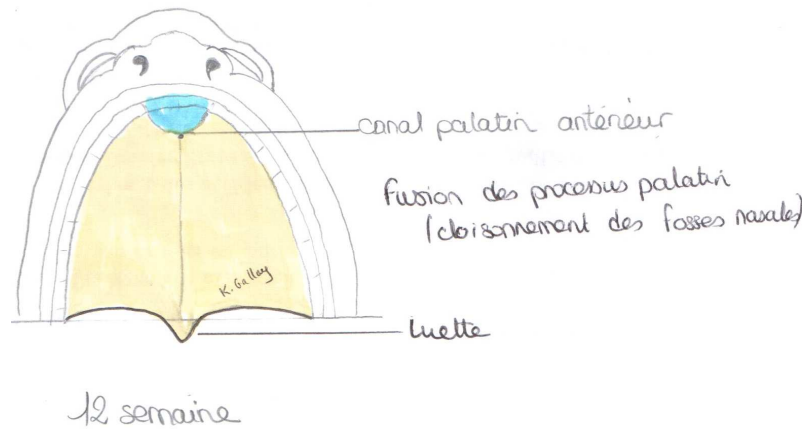 canal palatin antérieur
fusion des processus palatin
(cloisonnement des fosses nasales)
K. Galley
luette
12 semaine